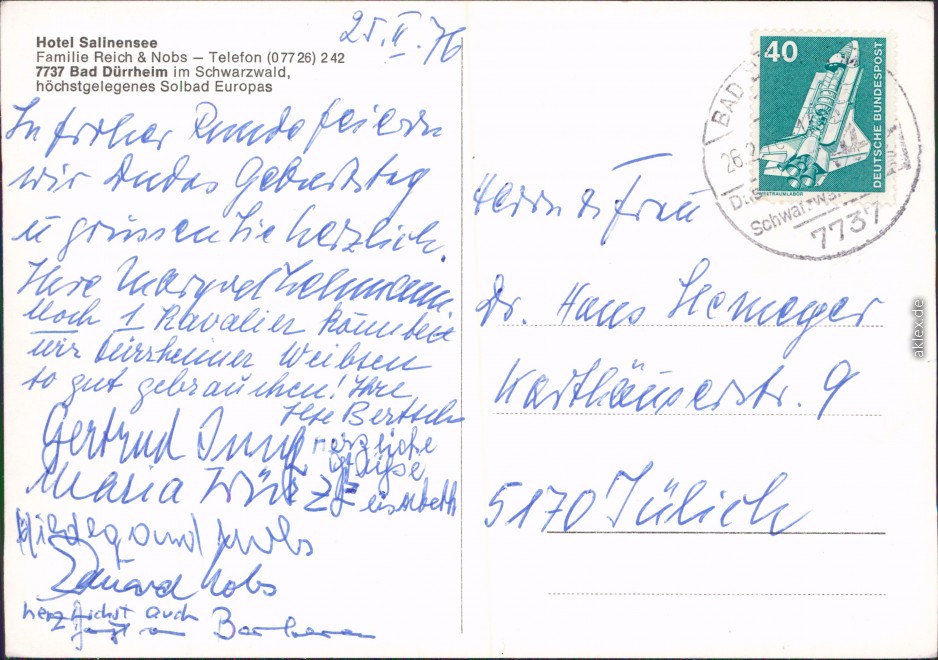 25.II.76
Hotel Salinensee
Familie Reich & Nobs – Telefon (07726) 242
7737 Bad Dürrheim im Schwarzwald,
höchstgelegenes Solbad Europas
In froher Runde feiern
wir Geburtstag
u grüssen Sie herzlich.
Ihre Margret Lehmann
noch 1 Kavalier könnten
wir Dürrheimer Weibsen
so gut gebrauchen! Ihre
Ilse Bertsch
Gertrud Jung herzliche
Grüße
Maria Elisabeth
Hildegard Nobs
Eduard Nobs
herzlichst auch
Barbara
40
DEUTSCHE BUNDESPOST
WELTRAUMLABOR
BAD
26.2
Schwarzwa
7737
Herrn & Frau
Dr. Hans
Karthäuserstr. 9
5170 Jülich
aklex.de